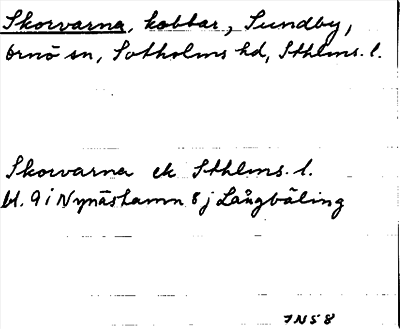 Skorvarna, kobbar, Sundby,
Ornö sn, Sotholms hd, Sthlms. l.
Skorvarna ek Sthlms. l.
bl. 9 i Nynäshamn 8 j Långbäling
7 N 5 8